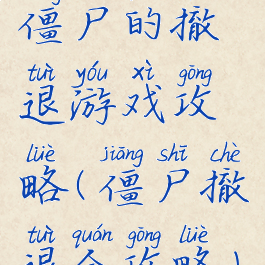 僵尸的撤
tuì yóu xì gōng
退游戏攻
lüè jiāng shī chè
略(僵尸撤
tuì quán gōng lüè
退全攻略)